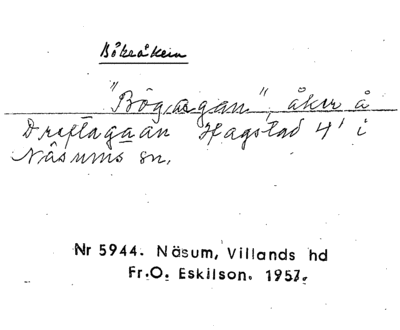 Bökeåkern
"Bögagan", åker å
Draftagaan Hagstad 4' i
Näsums sn.
Nr 5944. Näsum, Villands hd
Fr.O. Eskilson. 1957.